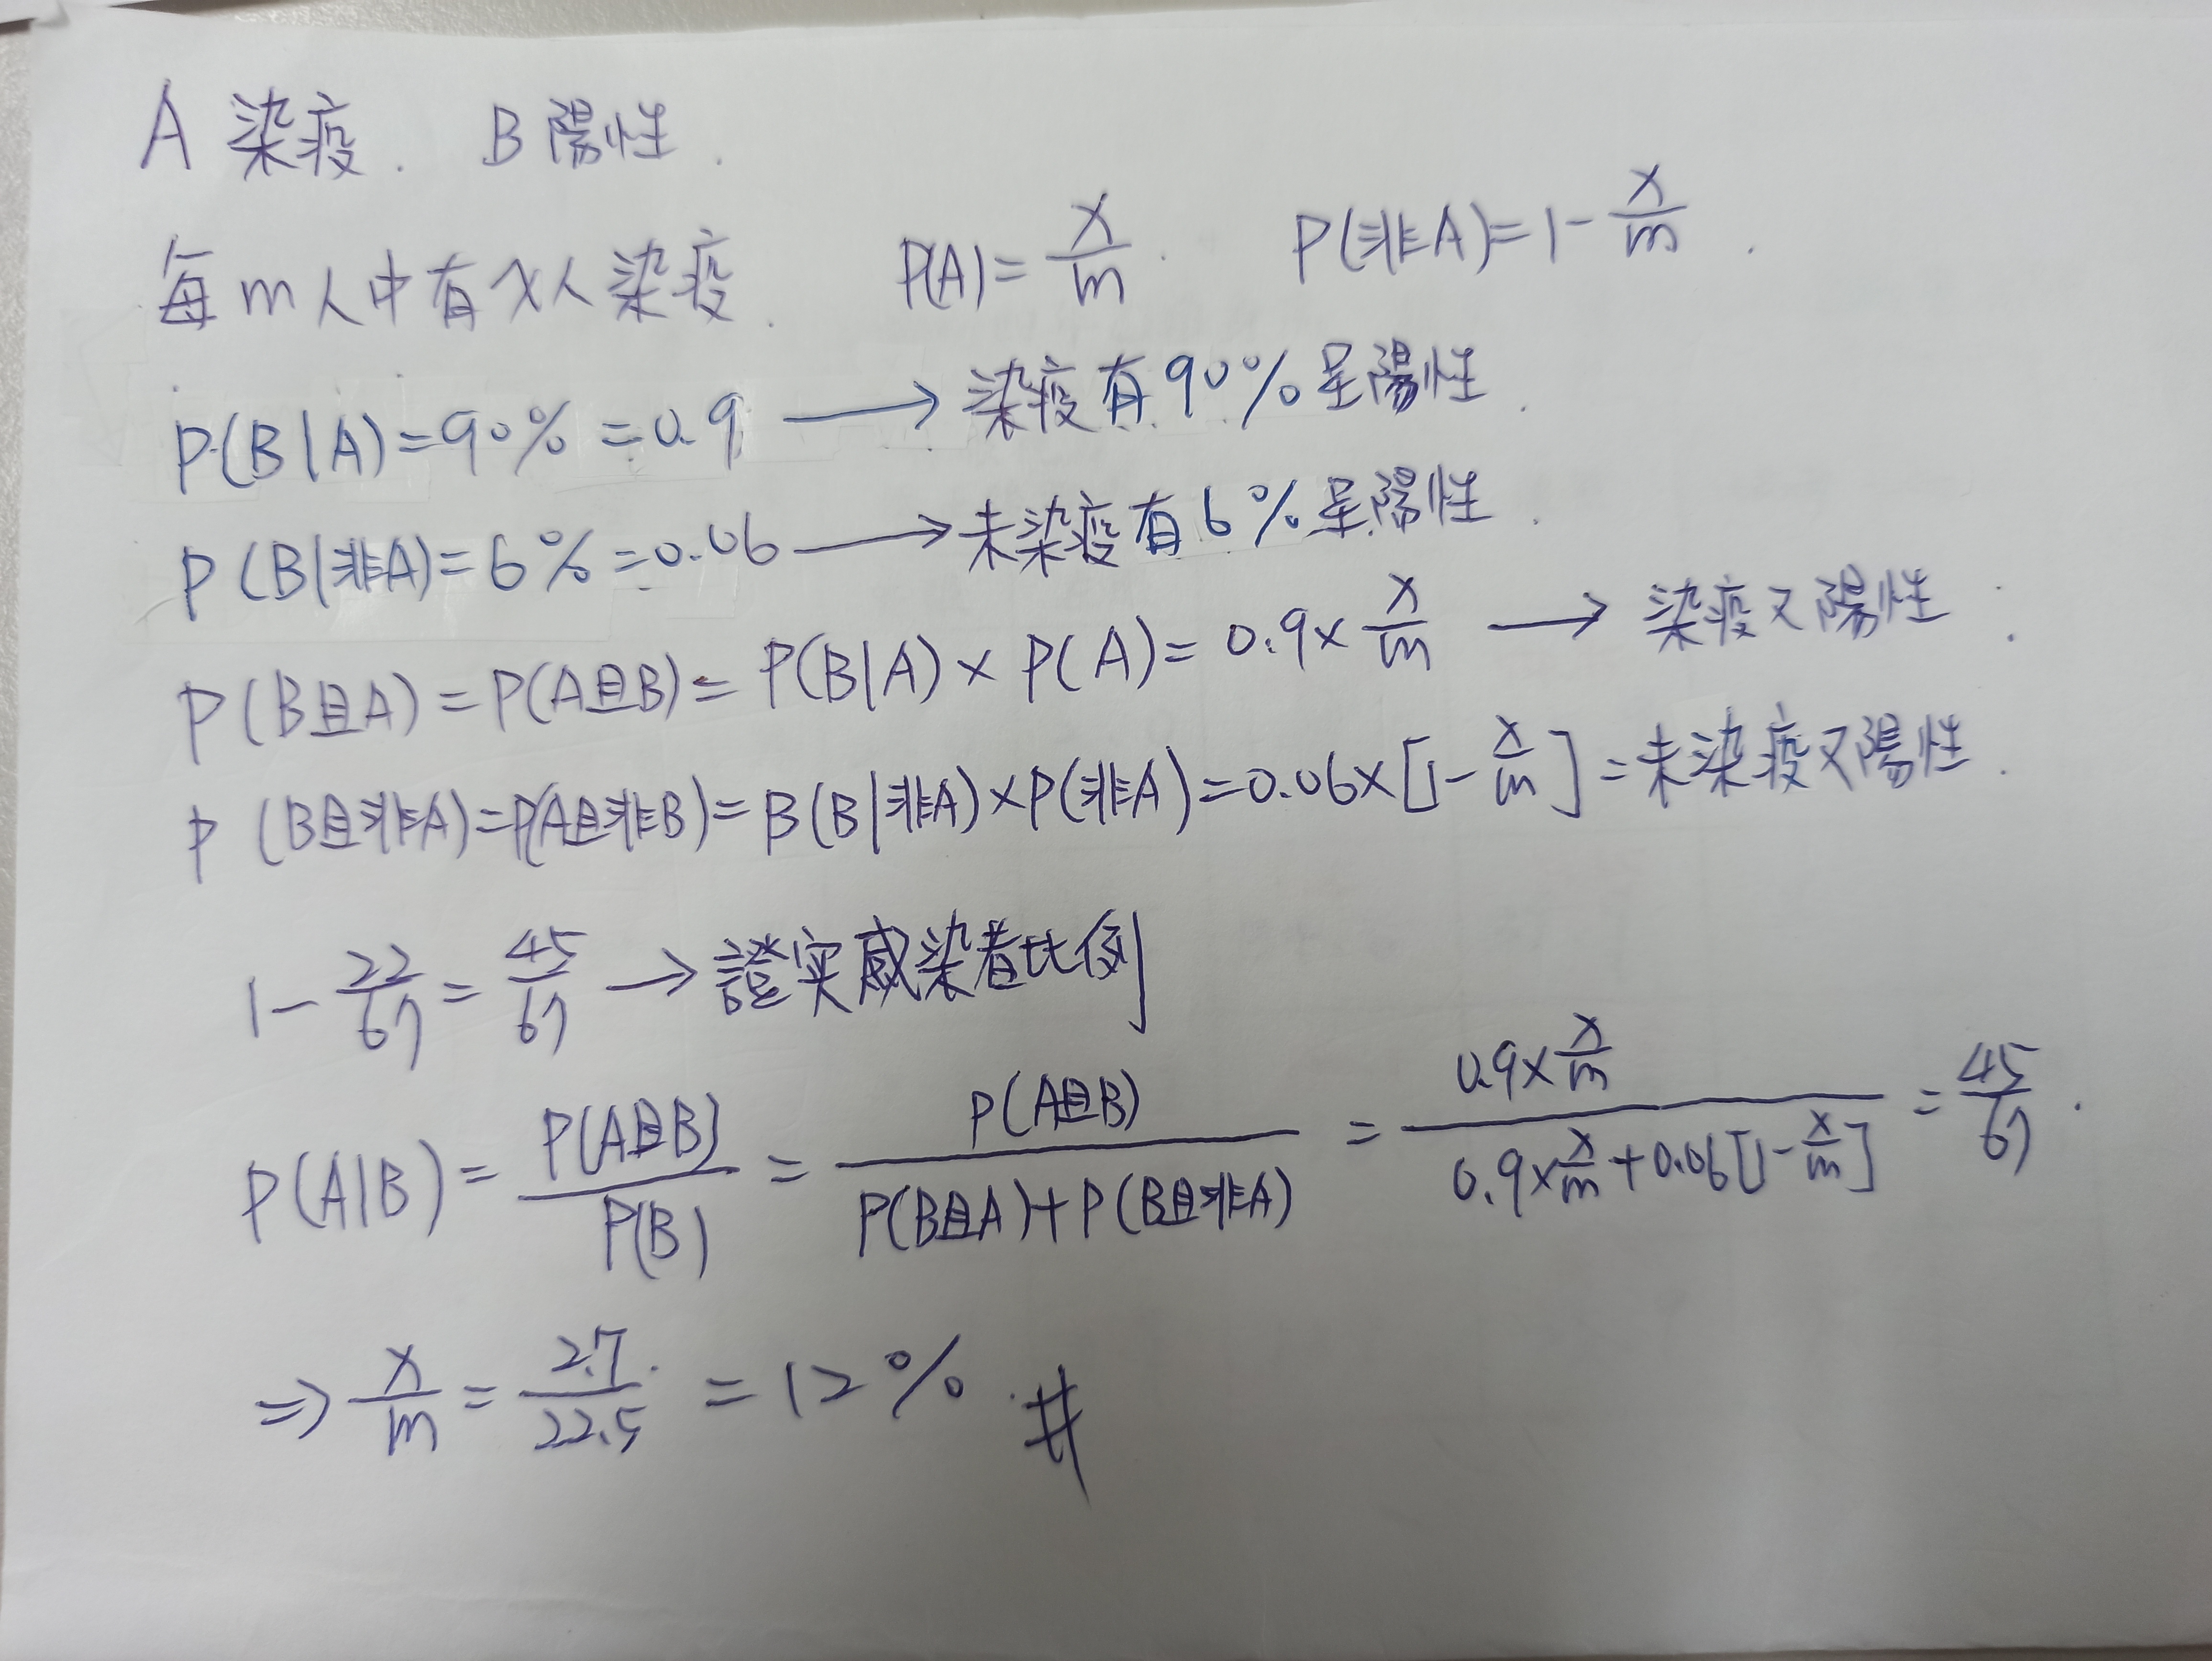 A 染疫. B 陽性.
每 m 人中有 x 人染疫. P(A)= x/m. P(非A)=1- x/m.
P(B|A)=90%=0.9 → 染疫有90%呈陽性.
P(B|非A)=6%=0.06 → 未染疫有6%呈陽性.
P(B且A)=P(A且B)=P(B|A)×P(A)=0.9× x/m → 染疫又陽性.
P(B且非A)=P(A且非B)=B(B|非A)×P(非A)=0.06×[1- x/m]=未染疫又陽性.
1- 22/67 = 45/67 → 證实感染者比例
P(A|B)= P(A且B)/P(B) = P(A且B)/(P(B且A)+P(B且非A)) = (0.9× x/m)/(0.9× x/m+0.06[1- x/m]) = 45/67.
⇒ x/m = 2.7/22.5 = 12%. #